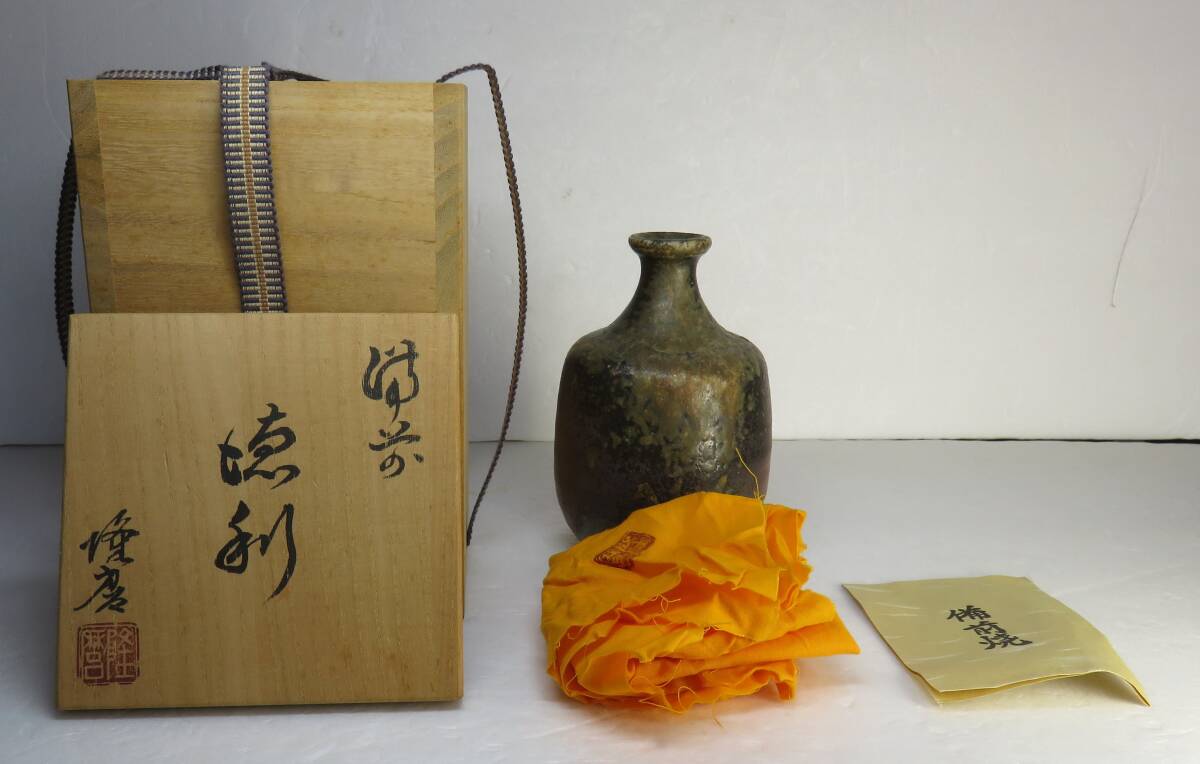 備前
徳利
隆磨
備前焼